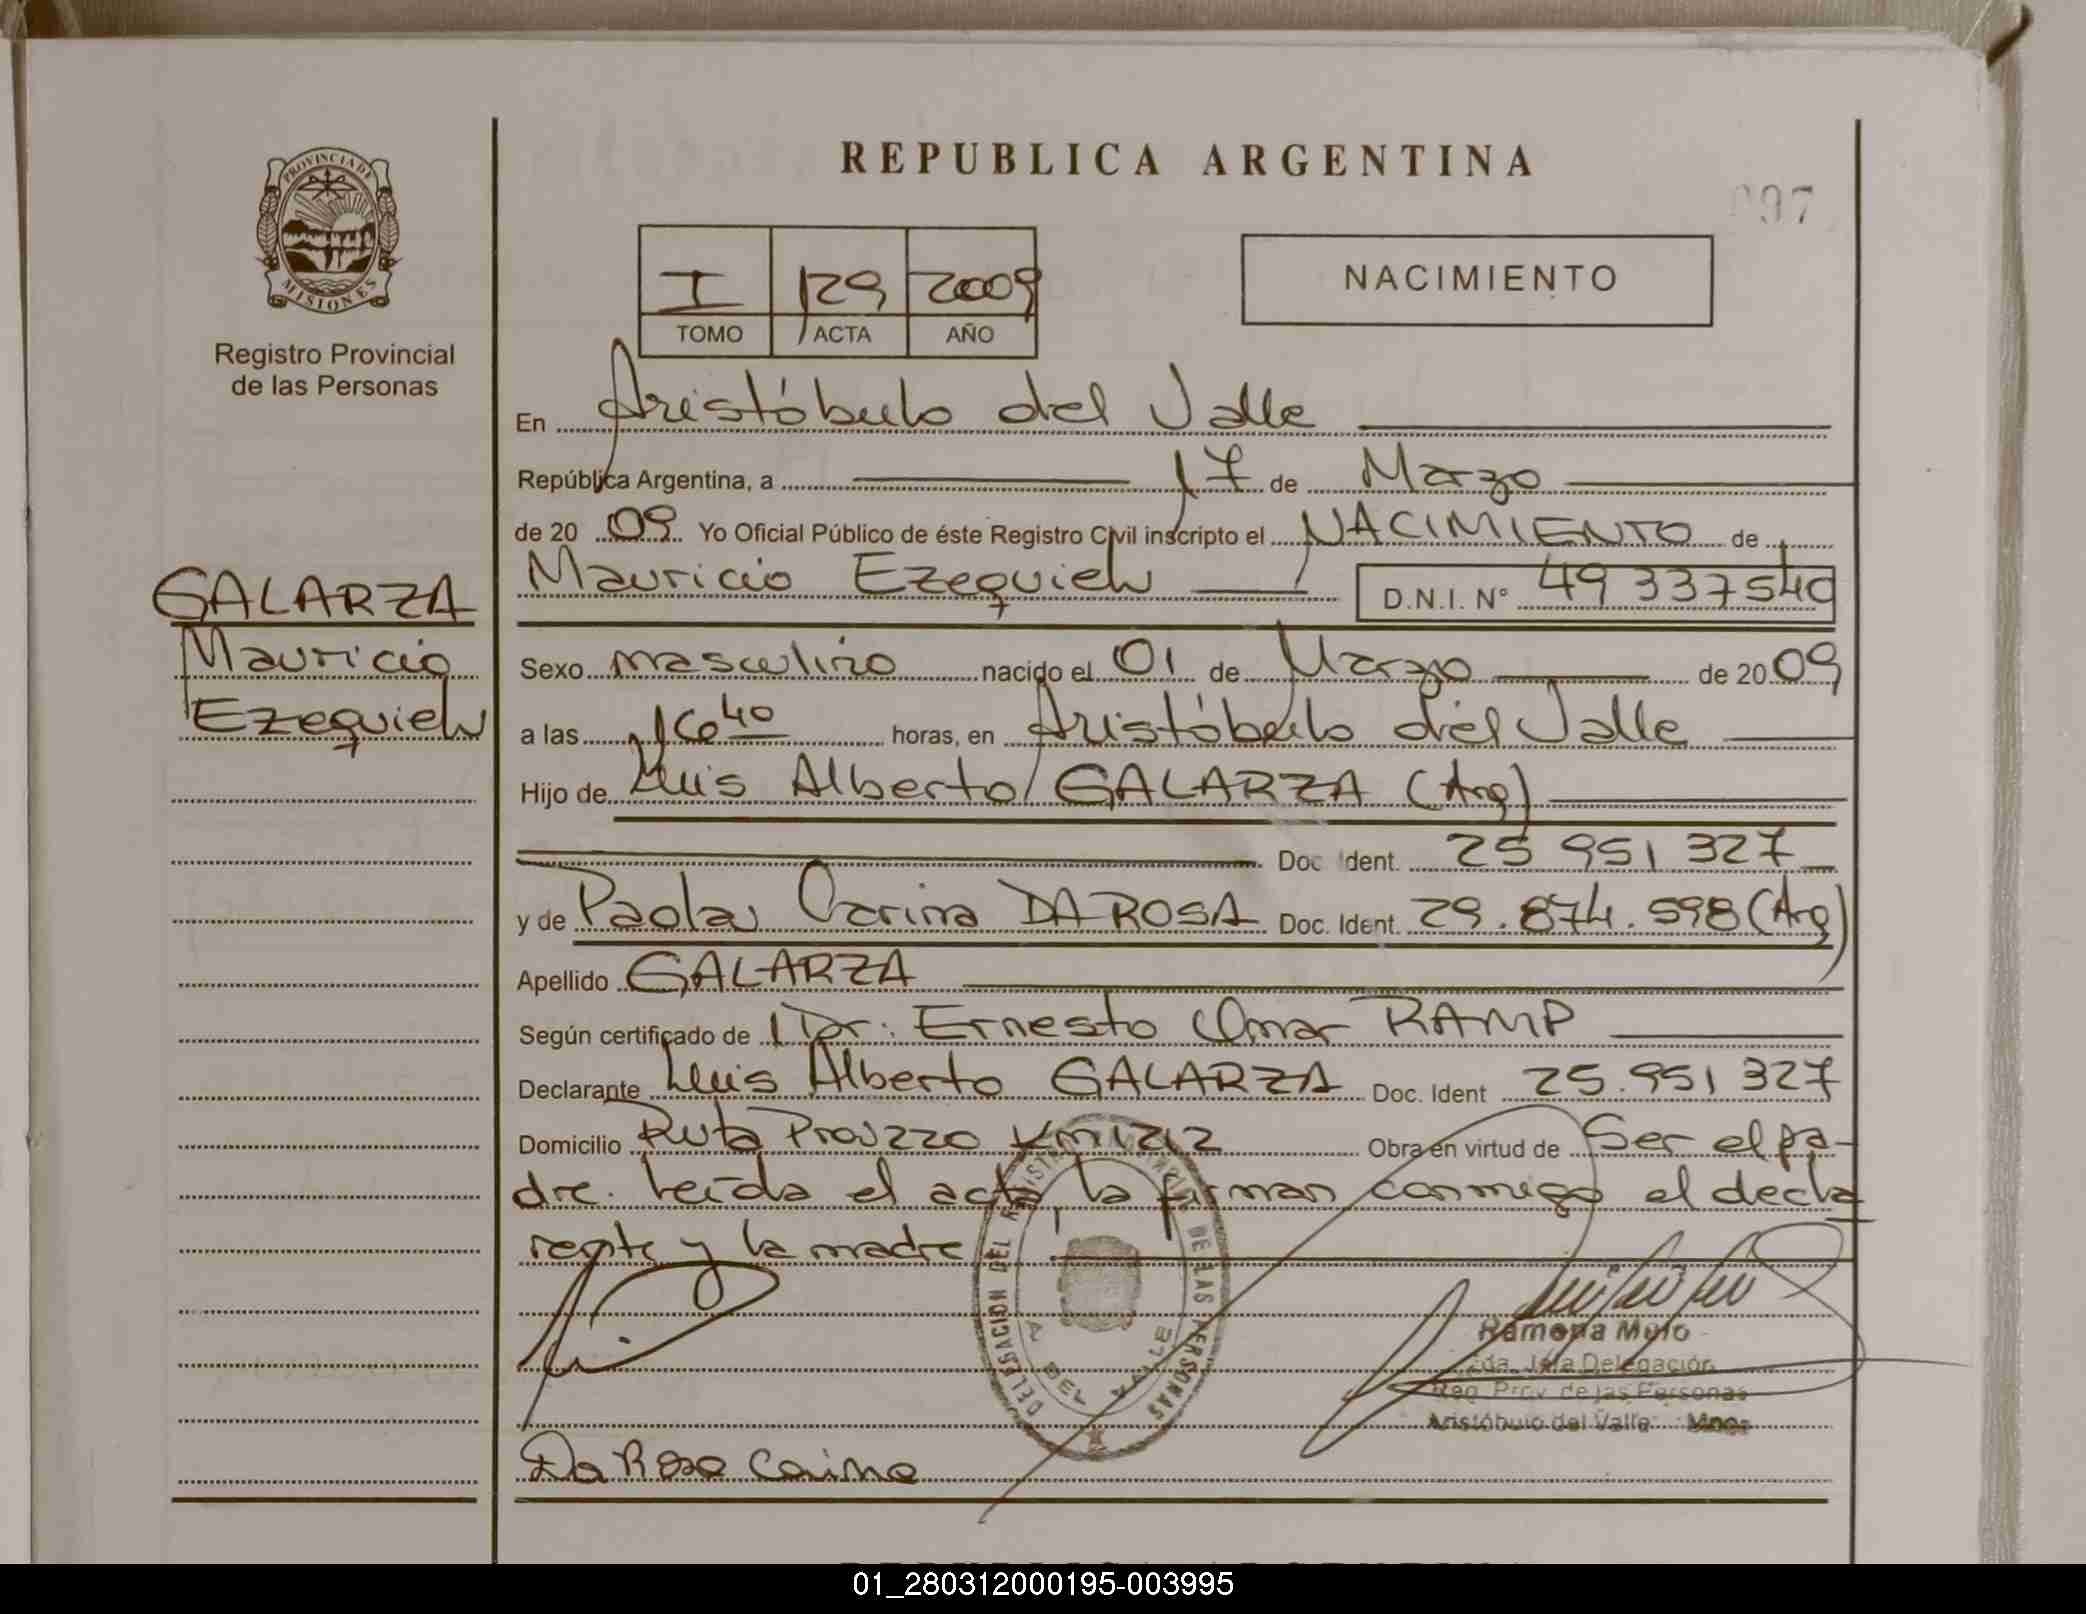 REPUBLICA ARGENTINA
097
PROVINCIA DE MISIONES
Registro Provincial
de las Personas
I 129 2009
TOMO ACTA AÑO
NACIMIENTO
En Aristóbulo del Valle
República Argentina, a 17 de Marzo
de 20 09 Yo Oficial Público de éste Registro Civil inscripto el NACIMIENTO de
Mauricio Ezequiel D.N.I. N° 49 337540
GALARZA
Mauricio
Ezequiel
Sexo masculino nacido el 01 de Marzo de 20 09
a las 16 40 horas, en Aristóbulo del Valle
Hijo de Luis Alberto GALARZA (Arg)
Doc Ident. 25 951 327
y de Paola Carina DA ROSA Doc. Ident. 29.874.598 (Arg)
Apellido GALARZA
Según certificado de Dr: Ernesto Omar RAMP
Declarante Luis Alberto GALARZA Doc. Ident 25.951 327
Domicilio Ruta Prov 220 Km 1212 Obra en virtud de Ser el pa-
dre. Leída el acta la firman conmigo el decla
rante y la madre
DELEGACION DEL REGISTRO DE LAS PERSONAS
A. DEL VALLE
Ramona Melo
2da. Jefa Delegación
Reg. Prov. de las Personas
Aristóbulo del Valle Mnes
Da Rosa Carina
01_280312000195-003995